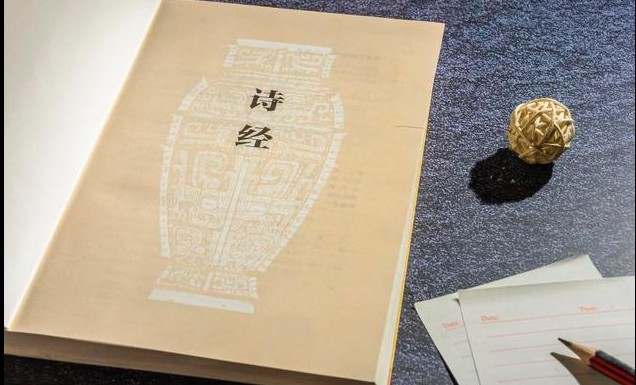 诗
经
Date:
Date: